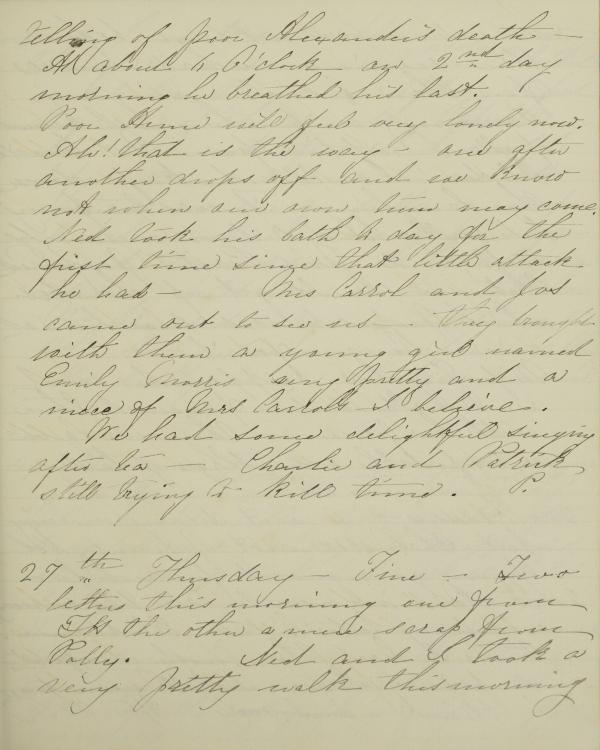 telling of poor Alexander's death —
At about 4 O'clock on 2nd day
morning he breathed his last.
Poor Hume will feel very lonely now.
Ah! that is the way — one after
another drops off and we know
not when our own turn may come.
Ned took his bath to day for the
first time since that little attack
he had — Mrs Carrol and Jos
came out to see us — they brought
with them a young girl named
Emily Morris very pretty and a
niece of Mrs Carrols I beleive.
We had some delightful singing
after tea — Charlie and Patrick
still trying to kill time. P.
27th Thursday — Fine — Two
letters this morning one from
the other a mere scrap from
Polly. Ned and I took a
very pretty walk this morning